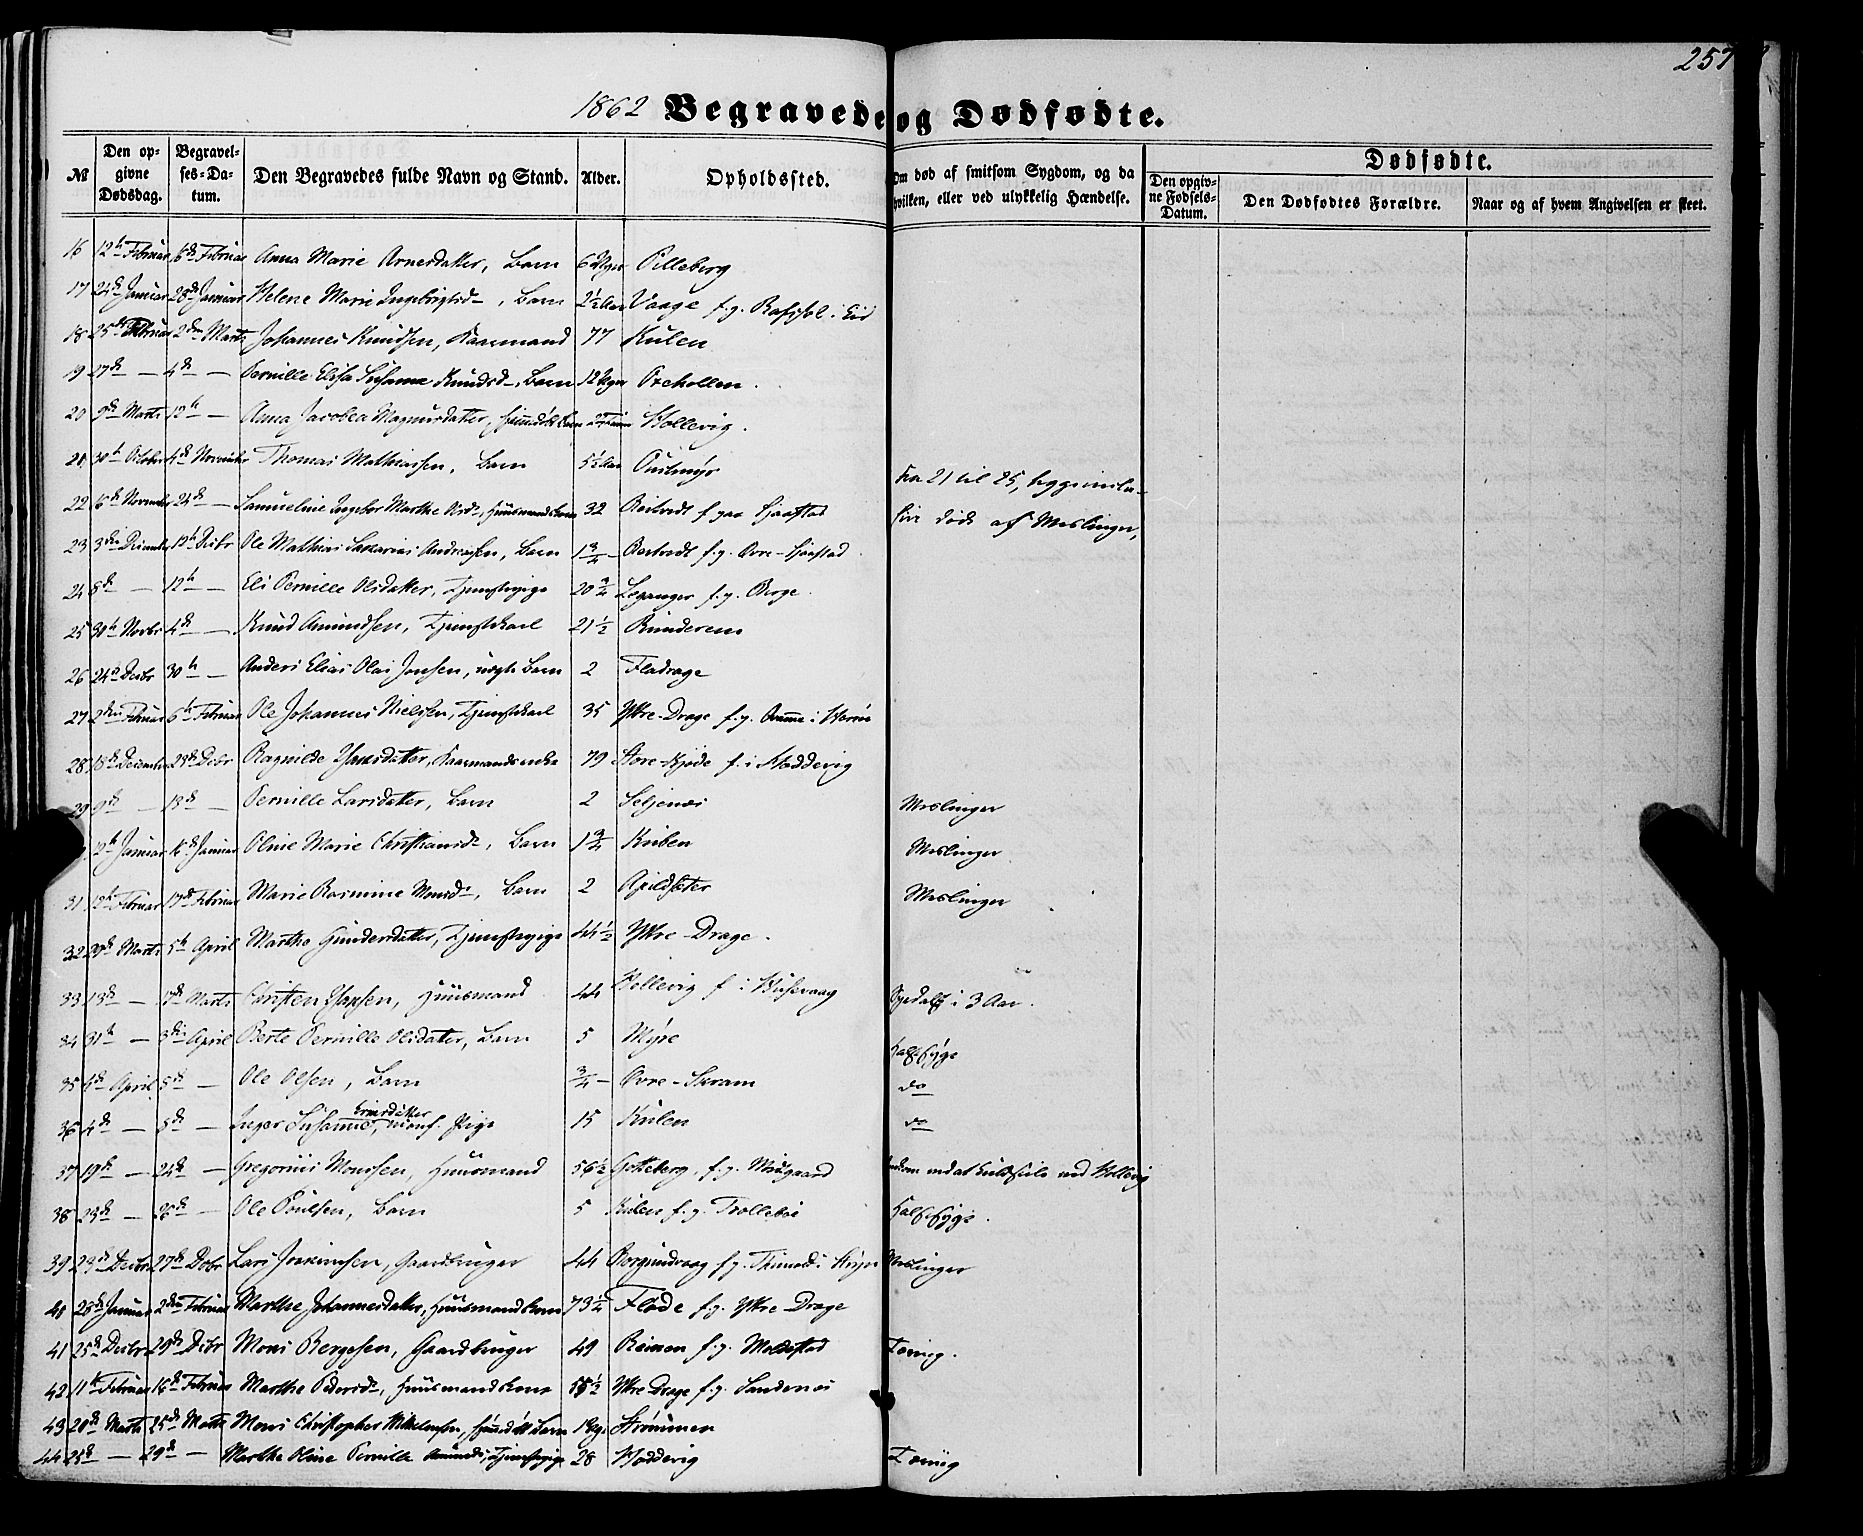 257
1862 Begravede og Dødfødte.
№ Den opgivne Dødsdag. Begravelses-Datum. Den Begravedes fulde Navn og Stand. Alder. Opholdssted. Om død af smitsom Sygdom, og da hvilken, eller ved ulykkelig Hændelse. Dødfødte.
Den opgivne Fødsels-Datum. Den Dødfødtes Forældre. Naar og af hvem Angivelsen er skeet.
16 12te Februar 6te Februar Anna Marie Arnesdatter, Barn 6 Uger Pilleberg
17 24de Januar 28de Januar Helene Marie Ingebrigtsd, Barn 2½ Aar Vaage f. g. i Eid
18 25de Februar 2den Marts Johannes Knudsen, Kaarmand 77 Kulen
19 27de — 4de — Pernille Elisa Susanne Knudsd, Barn 12 Uger Oxehollen.
20 9de Marts 12te — Anna Jacobea Magnusdatter, Barn Hollevig.
21 30te October 4de November Thomas Mathiassen, Barn 5½ Aar Fra 21 til 25, begge inclu-
22 16de November 24de — Samueline Ingebor Marthe Olsd, Huusmandskone 32 f. paa sive døde af Meslinger,
23 3die December 12te Decbr Ole Mathias Sakarias Andreassen, Barn 1¾ — f. g. Øvre-
24 8de — 12te — Eli Pernille Olsdatter, Tjenestepige 20¾ Leganger f. g. Berge.
25 30te Novbr 4de — Knud Amundsen, Tjenstekarl 21½ Runderem
26 24de Decbr 30te — Anders Elias Olai Jonsen, uægte Barn 2 Fladrage
27 2den Februar 6te Februar Ole Johannes Nielssen, Tjenstekarl 35 Ytre-Drage f. g.
28 18de December 23de Decbr Ragnilde Hansdatter, Kaarmandsenke 79 Store-Kjøde f. i Hoddevig
29 9de — 13de — Pernille Larsdatter, Barn 2 Seljenæs Meslinger
12te Januar 16de Januar Oline Marie Christiansd, Barn 1¾ Kuben Meslinger
31 12te Februar 17de Februar Marie Rasmine Monsd, Barn 2 Apildsæter Meslinger
32 29de Marts 5te April Marthe Gundersdatter, Tjenstepige 44½ Ytre-Drage.
33 13de — 17de Marts Christen Hansen, Huusmand 44 Hollevig f. i Husevaag i 3 Aar.
34 31te — 3die April Berte Pernille Olsdatter, Barn 5 Myre Halssyge
35 4de April 8de — Ole Olsen, Barn ¾ — Øvre-Skram do
36 4de — 8de — Inger Susanne Ernesdatter, conf. Pige 15 Kulen do
37 19de — 24de — Gregorius Monssen, Huusmand 56½ Gotteberg, f. g. Midgaard ved Hollevig
38 23de — 28de — Ole Poulsen, Barn 5 Kulen f. g. Trollebøe Halssyge.
39 23de Decbr 27de Dcbr Lars Joakimsen, Gaardbruger 44 Borgundvaag f. g. Meslinger
40 28de Januar 2den Februar Marthe Johannesdatter, Huusmandskone 73½ Flode f. g. Ytre Drage
41 25de Decbr 29de Decbr Mons Børgesen, Gaardbruger 49 Reimen f. g. Moldestad Tæring.
42 11te Februar 16de Februar Marthe Pedersd, Huusmandskone 55½ Ytre Drage f. g. Sandenæs
43 20de Marts 25de Marts Mons Christopher Vilhelmsen, Barn Strømmen
44 25de — 29de — Marthe Oline Pernille Amunds, Tjenstepige 28 Hoddevig Tæring